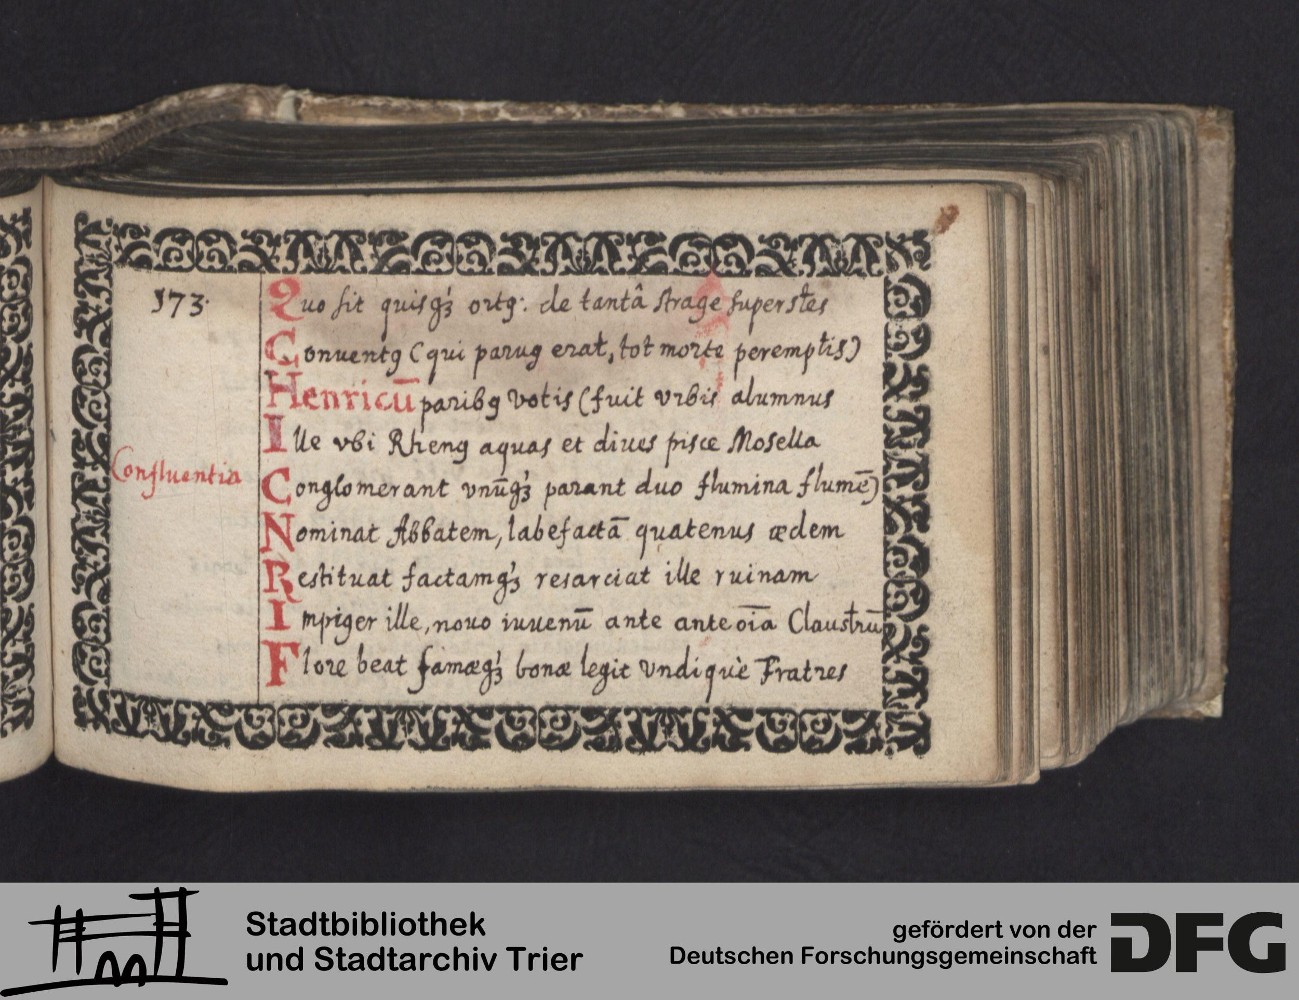 173.
Quo sit quisqꝫ ortꝯ: de tantâ strage superstes
Conuentꝯ (qui paruꝯ erat, tot morte peremptis)
Henricū paribꝯ votis (fuit vrbis alumnus
Ille vbi Rhenꝯ aquas et diues pisce Mosella
Confluentia
Conglomerant vnūqꝫ parant duo flumina flumē)
Nominat Abbatem, labefactā quatenus ædem
Restituat factamqꝫ resarciat ille ruinam
Impiger ille, nouo iuuenū ante ante oīa Claustrū
Flore beat famæqꝫ bonæ legit vndiquè Fratres
Stadtbibliothek
und Stadtarchiv Trier
gefördert von der
Deutschen Forschungsgemeinschaft
DFG